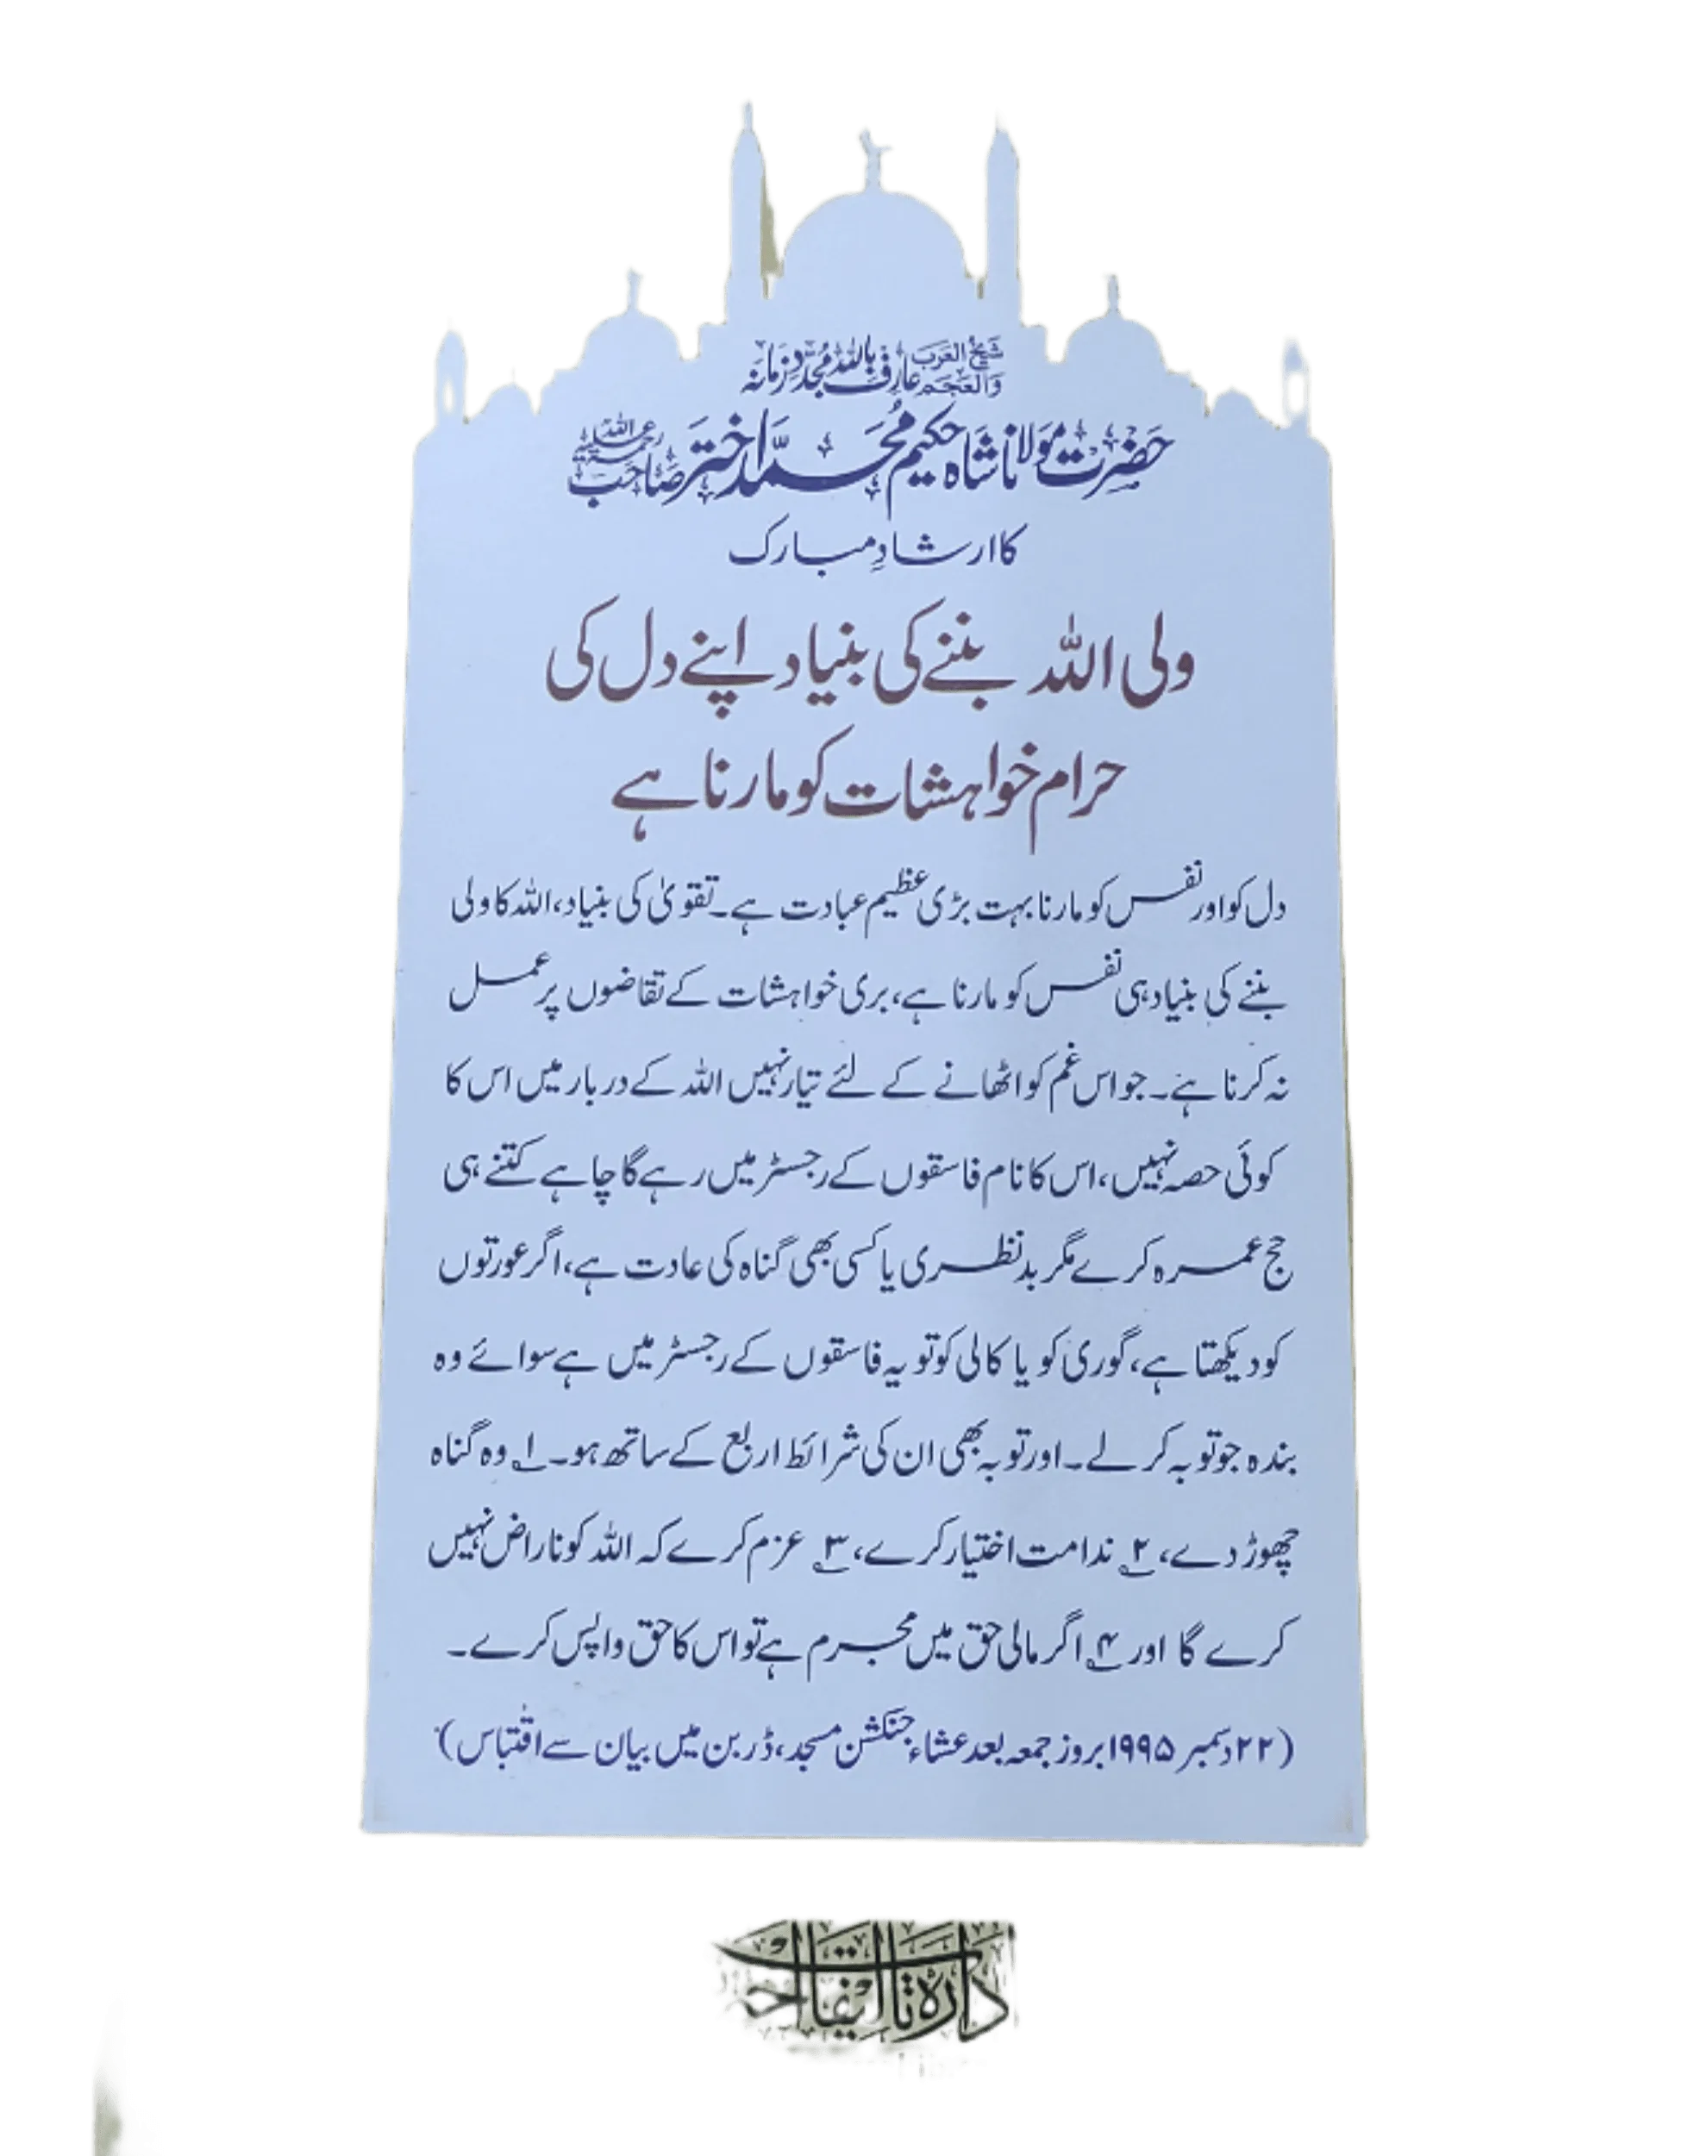 شیخ العرب والعجم عارف باللہ مجددِ زمانہ
حضرت مولانا شاہ حکیم محمد اختر صاحب رحمۃ اللہ علیہ
کا ارشادِ مبارک
ولی اللہ بننے کی بنیاد اپنے دل کی
حرام خواہشات کو مارنا ہے
دل کو اور نفس کو مارنا بہت بڑی عظیم عبادت ہے۔ تقویٰ کی بنیاد، اللہ کا ولی
بننے کی بنیاد ہی نفس کو مارنا ہے، بری خواہشات کے تقاضوں پر عمل
نہ کرنا ہے۔ جو اس غم کو اٹھانے کے لئے تیار نہیں اللہ کے دربار میں اس کا
کوئی حصہ نہیں، اس کا نام فاسقوں کے رجسٹر میں رہے گا چاہے کتنے ہی
حج عمرہ کرے مگر بدنظری یا کسی بھی گناہ کی عادت ہے، اگر عورتوں
کو دیکھتا ہے، گوری کو یا کالی کو تو یہ فاسقوں کے رجسٹر میں ہے سوائے وہ
بندہ جو توبہ کرلے۔ اور توبہ بھی ان کی شرائط اربع کے ساتھ ہو۔ ۱؎ وہ گناہ
چھوڑ دے، ۲؎ ندامت اختیار کرے، ۳؎ عزم کرے کہ اللہ کو ناراض نہیں
کرے گا اور ۴؎ اگر مالی حق میں مجرم ہے تو اس کا حق واپس کرے۔
(۲۲ دسمبر ۱۹۹۵ بروز جمعہ بعد عشاء جنکشن مسجد، ڈربن میں بیان سے اقتباس)